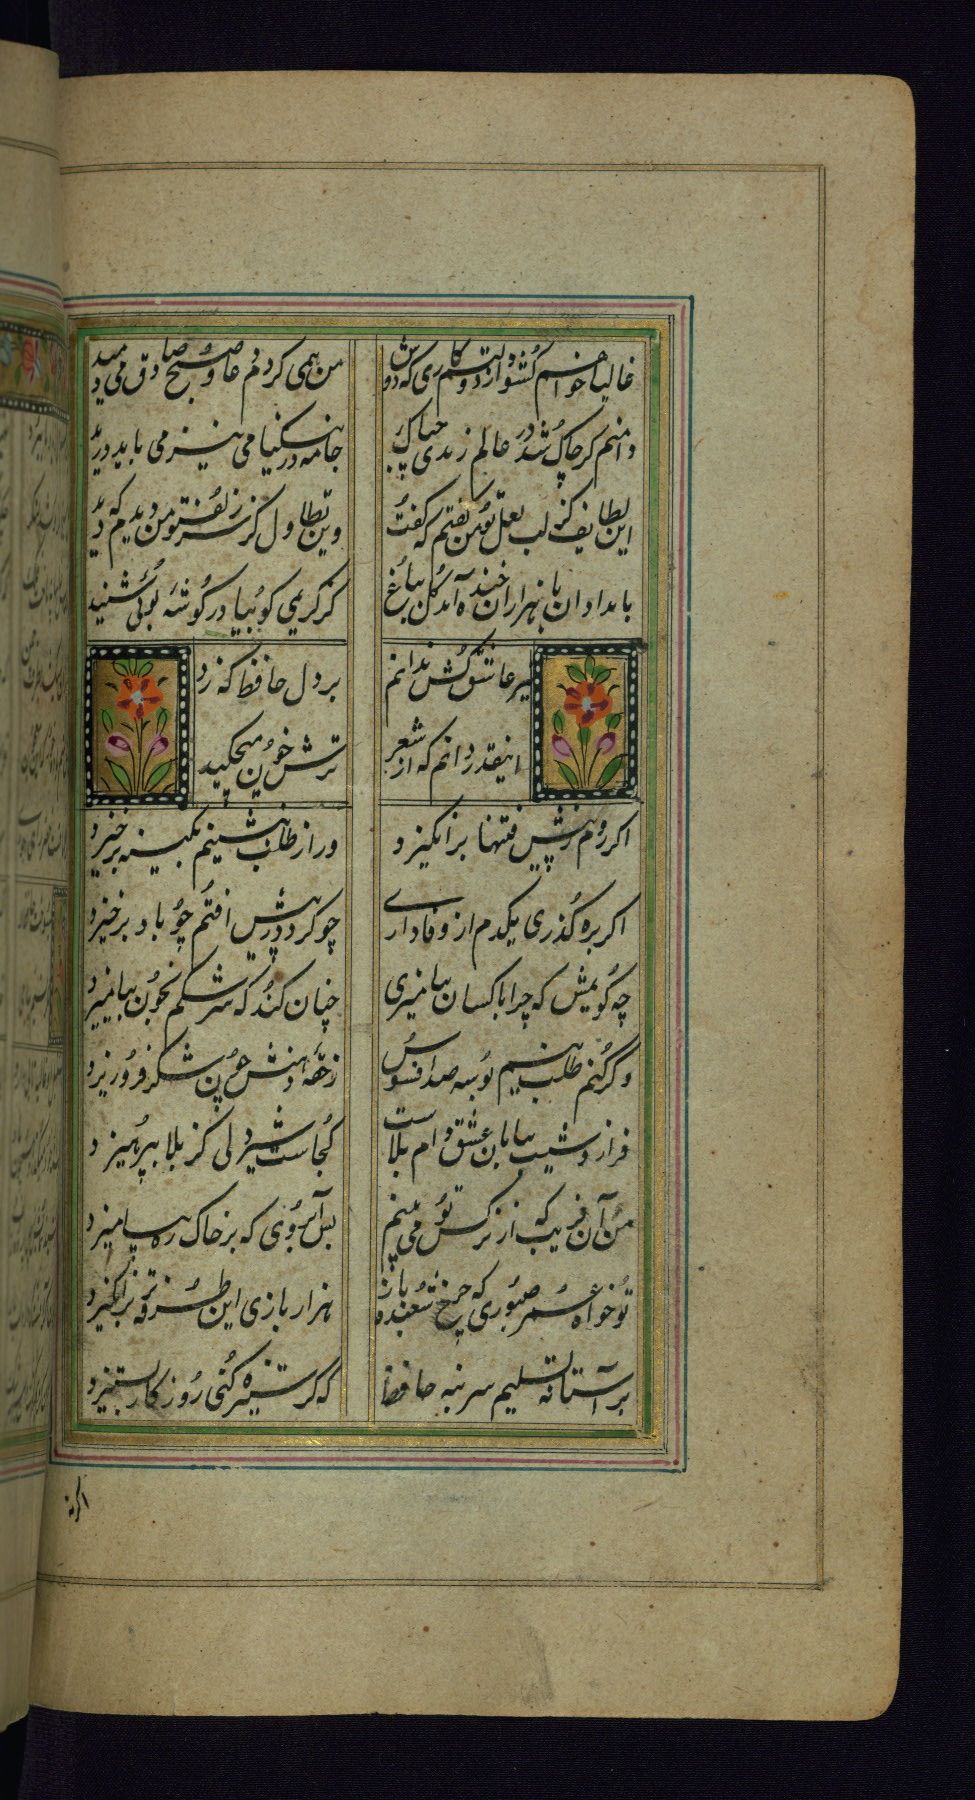 غالبا خواهم کشود از دولتم کاری که دوش من همی کردم دعا و صبح صادق می دمید
دامنم کر چاک شد در عالم رندی چه باک جامه در نیکنامی نیز می باید درید
این لطایف کز لب لعل تو من گفتم که گفت وین تطاول کز سر زلف تو من دیدم که دید
بامدادان با هزاران خنده آمد کل بباغ کز کریمی کوئیا در کوشهٔ بوئی شنید
تیر عاشق کش ندانم بر دل حافظ که زد
اینقدر دانم که از شعر ترش خون میچکید
اکر روم ز پیش فتنها برانکیزد ور از طلب بنشینم بکینه برخیزد
اکر بره کذری یکدم از وفاداری چو کرد در پیش افتم چو باد برخیزد
چه گویمش که چرا با کسان بیامیزی چنان کند که سرشکم بخون بیامیزد
وکر کنم طلب نیم بوسه صد افسوس ز حقهٔ دهنش چون شکر فرو ریزد
فراز و شیب بیابان عشق دام بلاست کجاست شیر دلی کز بلا بپرهیزد
من آن فریب که از نرکس تو می بینم بس آبروی که بر خاک ره بیامیزد
تو خواه عمر و صبوری که چرخ شعبده باز هزار بازی ازین طرفه تر برانکیزد
بر آستانهٔ تسلیم سر بنه حافظ که کر ستیزه کنی روزکار بستیزد
اکر نه